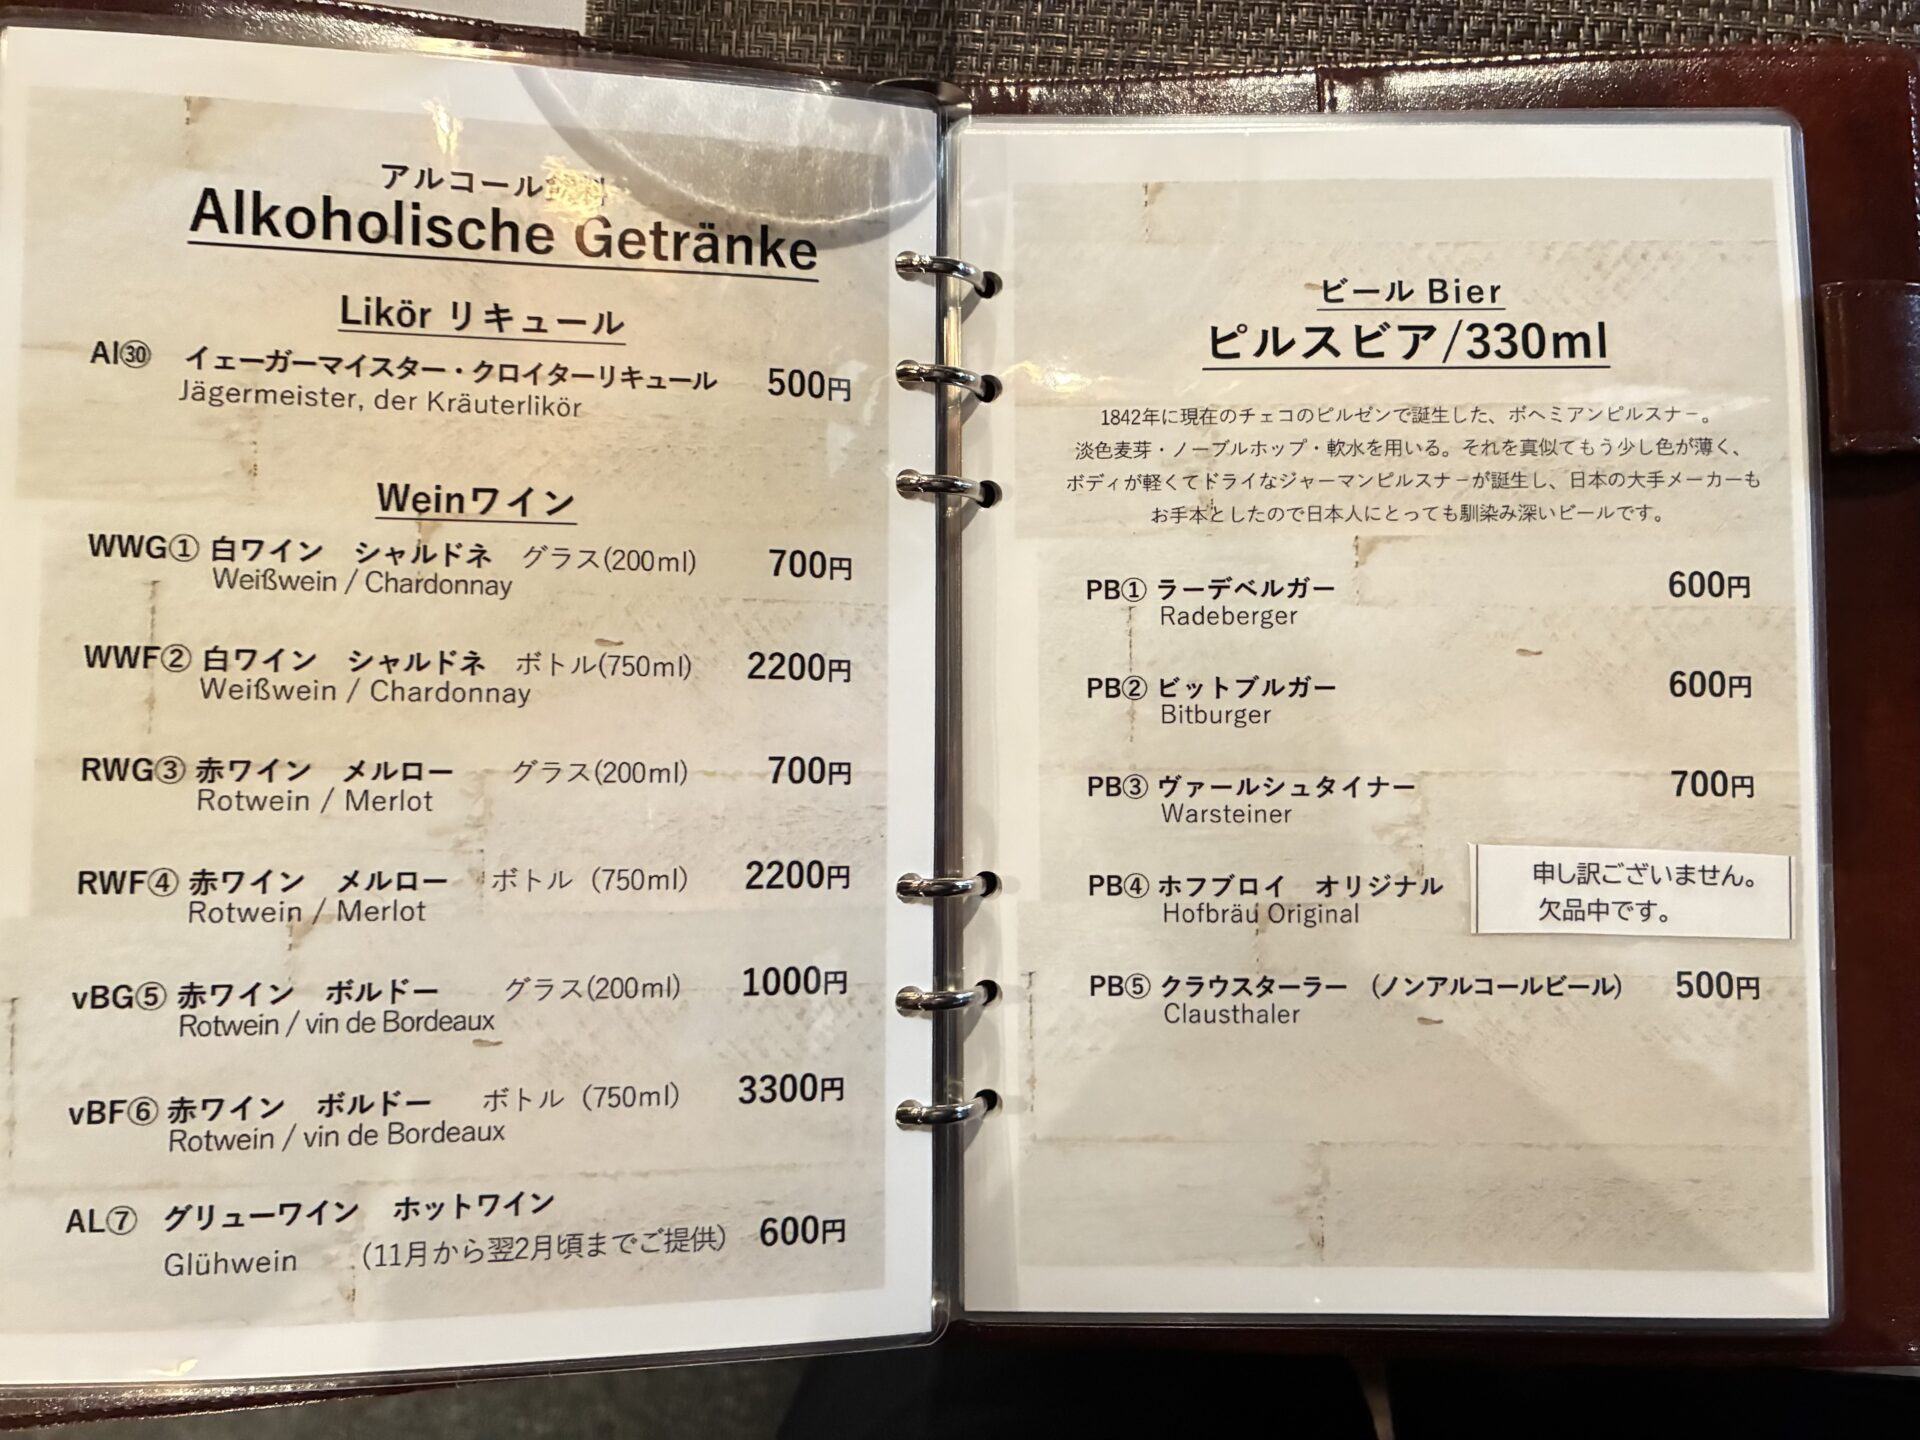 アルコール飲料
Alkoholische Getränke
Likör リキュール
Al㉚ イェーガーマイスター・クロイターリキュール 500円
Jägermeister, der Kräuterlikör
Weinワイン
WWG① 白ワイン シャルドネ グラス(200ml) 700円
Weißwein / Chardonnay
WWF② 白ワイン シャルドネ ボトル(750ml) 2200円
Weißwein / Chardonnay
RWG③ 赤ワイン メルロー グラス(200ml) 700円
Rotwein / Merlot
RWF④ 赤ワイン メルロー ボトル (750ml) 2200円
Rotwein / Merlot
vBG⑤ 赤ワイン ボルドー グラス(200ml) 1000円
Rotwein / vin de Bordeaux
vBF⑥ 赤ワイン ボルドー ボトル (750ml) 3300円
Rotwein / vin de Bordeaux
AL⑦ グリューワイン ホットワイン 600円
Glühwein (11月から翌2月頃までご提供)
ビール Bier
ピルスビア/330ml
1842年に現在のチェコのピルゼンで誕生した、ボヘミアンピルスナー。
淡色麦芽・ノーブルホップ・軟水を用いる。それを真似てもう少し色が薄く、
ボディが軽くてドライなジャーマンピルスナーが誕生し、日本の大手メーカーも
お手本としたので日本人にとっても馴染み深いビールです。
PB① ラーデベルガー 600円
Radeberger
PB② ビットブルガー 600円
Bitburger
PB③ ヴァールシュタイナー 700円
Warsteiner
PB④ ホフブロイ オリジナル
Hofbräu Original
申し訳ございません。
欠品中です。
PB⑤ クラウスターラー (ノンアルコールビール) 500円
Clausthaler